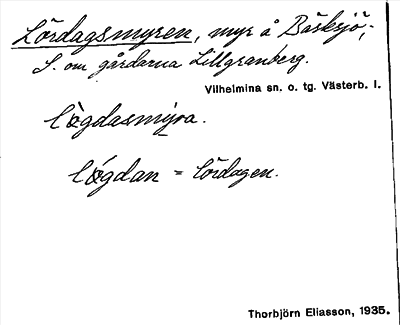 Lördagsmyren, myr å Bäsksjö,;
S. om gårdarna Lillgranberg.
Vilhelmina sn. o. tg. Västerb. l.
lö̀gdasmýra.
lǿgdan = lördagen.
Thorbjörn Eliasson, 1935.